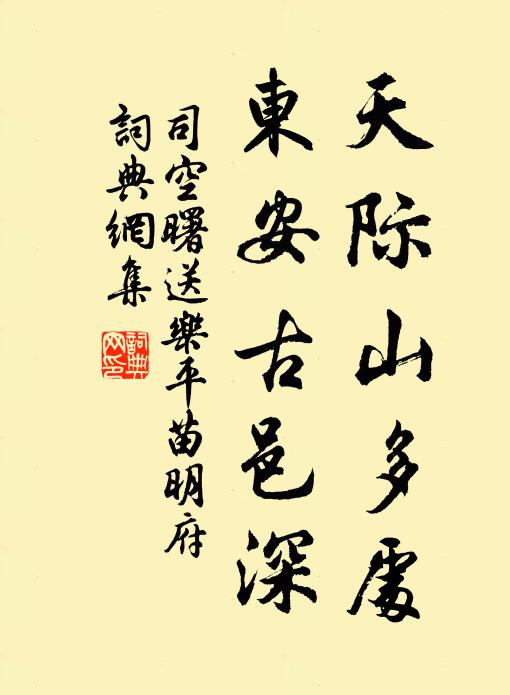 天际山多處
東安古邑深
司空曙送樂平苗明府
詞典網集
詞典
网印